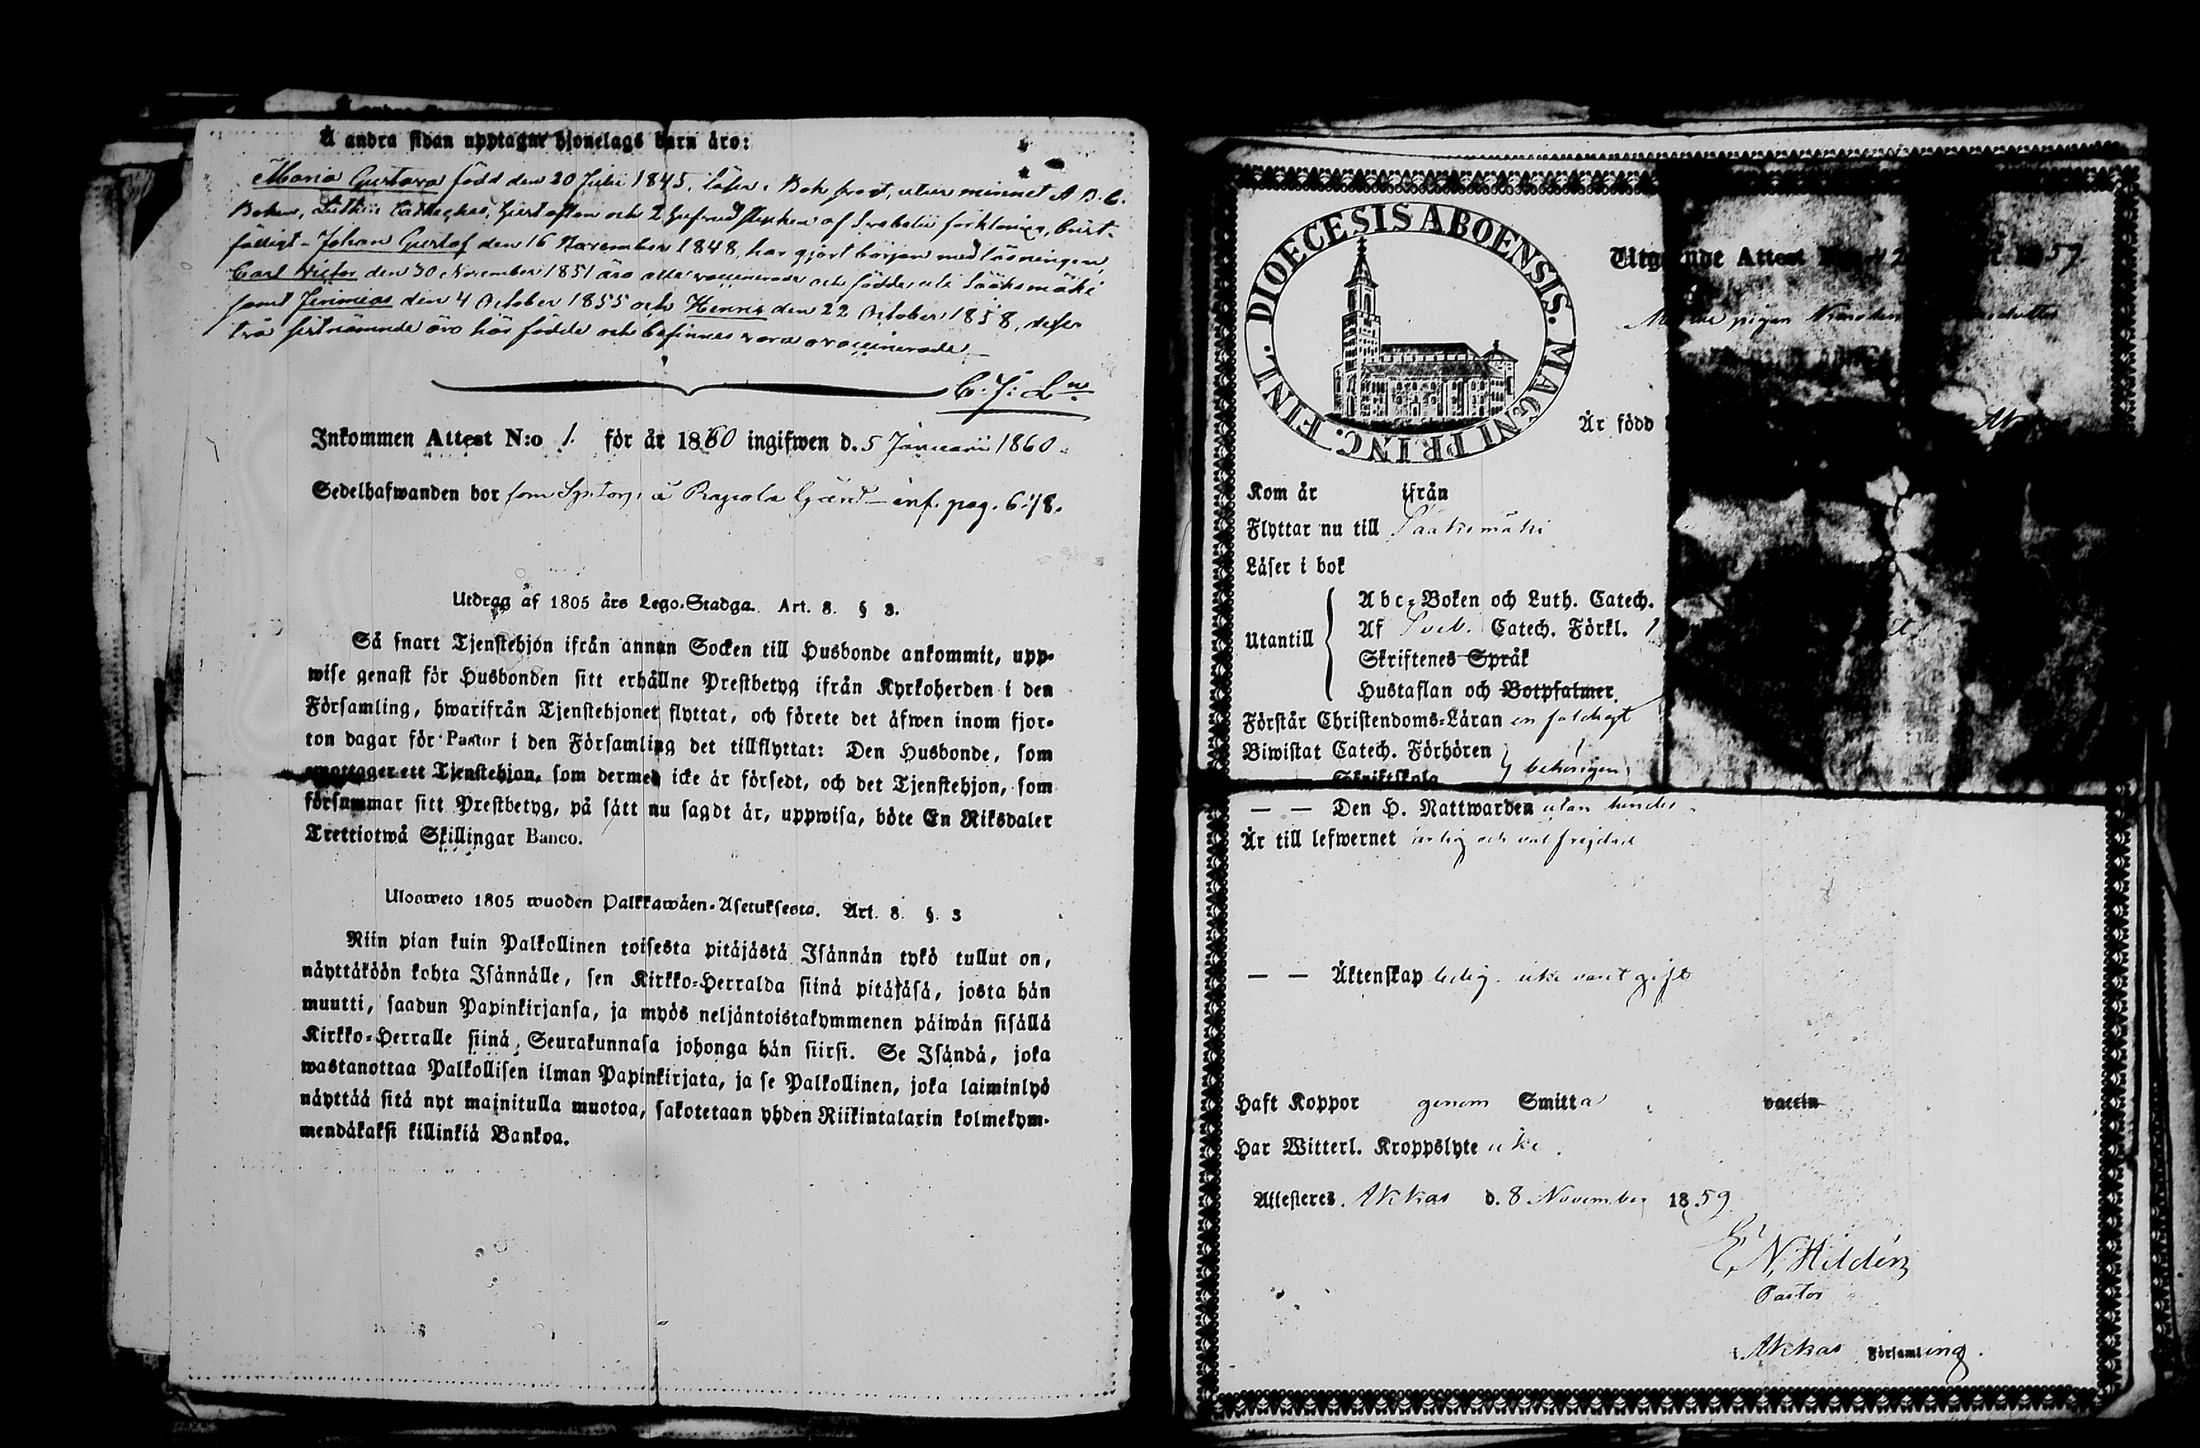 Å andra sidan upptagne hjonelags barn äro:
Maria Gustava född den 20 Julii 1845, läser i Bok frost, utur minnet A. B. C.
Boken, Luthers Catheches, och 2 af Svebelii förklaring,
fälligt - Johan Gustaf den 16 November 1848, har gjort början med läsningen,
Carl Victor den 30 November 1851 äro alla vaccinerade och födde uti Sääksmäki
samt Jerimias den 4 October 1855 och Henric den 22 October 1858, desse
två sistnämnde äro här födde och befinnes vara ovaccinerade
Inkommen Attest N:o 1. för år 1860 ingifwen d. 5 Januarii 1860.
Sedelhafwanden bor som å Gård - inf. pag. 678.
Utdrag af 1805 års Lego-Stadga. Art. 8. § 3.
Så snart Tjenstehjon ifrån annan Socken till Husbonde ankommit, upp-
wise genast för Husbonden sitt erhållne Prestbetyg ifrån Kyrkoherden i den
Församling, hwarifrån Tjenstehjonet flyttat, och förete det äfwen inom fjor-
ton dagar för Pastor i den Församling det tillflyttat: Den Husbonde, som
emottager ett Tjenstehjon, som dermed icke är försedt, och det Tjenstehjon, som
försummar sitt Prestbetyg, på sätt nu sagdt är, uppwisa, böte En Riksdaler
Trettiotwå Skillingar Banco.
Ulosweto 1805 wuoden Palkkawäen-Asetuksesta. Art. 8. §. 3
Niin pian kuin Palkollinen toisesta pitäjästä Isännän tykö tullut on,
näyttäköön kohta Isännälle, sen Kirkko-Herralda siinä pitäjäsä, josta hän
muutti, saadun Papinkirjansa, ja myös neljäntoistakymmenen päiwän sisällä
Kirkko-Herralle siinä Seurakunnasa johonga hän siirsi. Se Isändä, joka
wastanottaa Palkollisen ilman Papinkirjata, ja se Palkollinen, joka laiminlyö
näyttää sitä nyt mainitulla muotoa, sakotetaan yhden Riikintalarin kolmekym-
mendäkaksi killinkiä Bankoa.
DIOECESIS ABOENSIS. MAGNI PRINC. FINL.
Attest 59
pigan
Är född
Kom år ifrån
Flyttar nu till Sääksmäki
Läser i bok
Utantill
Abc-Boken och Luth. Catech.
Af Sveb. Catech. Förkl.
Skriftenes Språk
Hustaflan och Botpsalmer.
Förstår Christendoms-Läran enfaldigt
Biwistat Catech. Förhören behörigen
Skriftskola
— — Den H. Nattwarden utan hinder
Är till lefwernet ärlig och väl frejdad
— — Äktenskap ledig icke varit gift
Haft Koppor genom Smitta vaccin
Har Witterl. Kroppslyte icke.
Attesteres. Akkas d. 8 November 1859
E. N. Hildén
Pastor
i Akkas Församling.